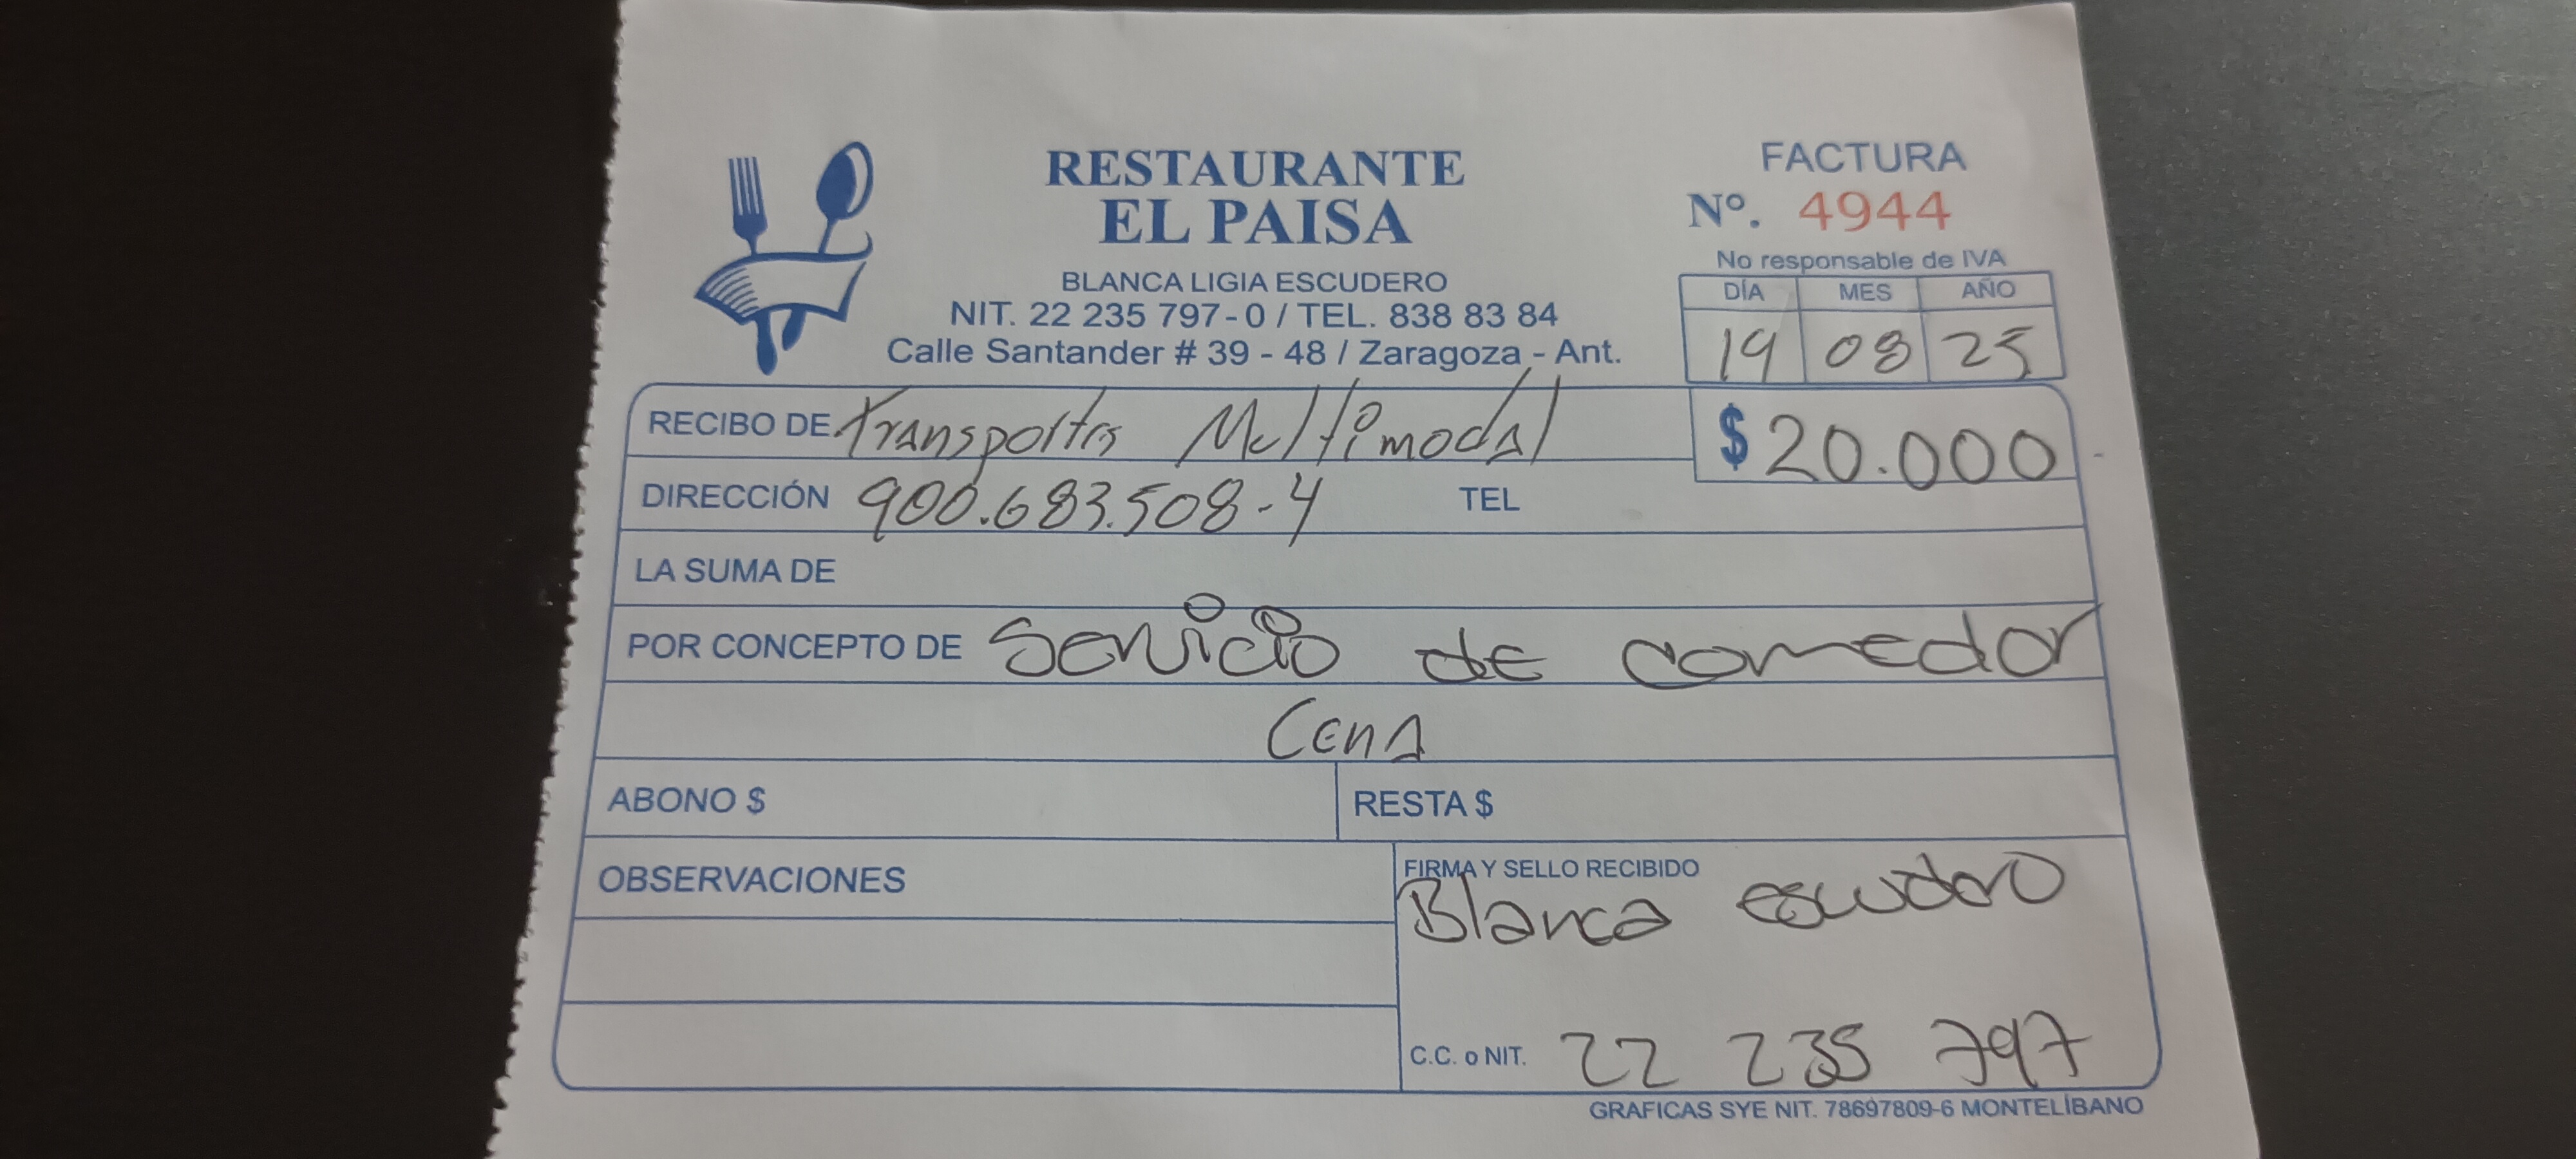 RESTAURANTE
EL PAISA
BLANCA LIGIA ESCUDERO
NIT. 22 235 797-0 / TEL. 838 83 84
Calle Santander # 39 - 48 / Zaragoza - Ant.
FACTURA
Nº. 4944
No responsable de IVA
DÍA MES AÑO
19 08 25
RECIBO DE Transportes Multimodal
$ 20.000
DIRECCIÓN 900.683.508-4 TEL
LA SUMA DE
POR CONCEPTO DE Servicio de comedor
Cena
ABONO $ RESTA $
OBSERVACIONES
FIRMA Y SELLO RECIBIDO
Blanca escudero
C.C. o NIT. 22 235 797
GRAFICAS SYE NIT. 78697809-6 MONTELÍBANO